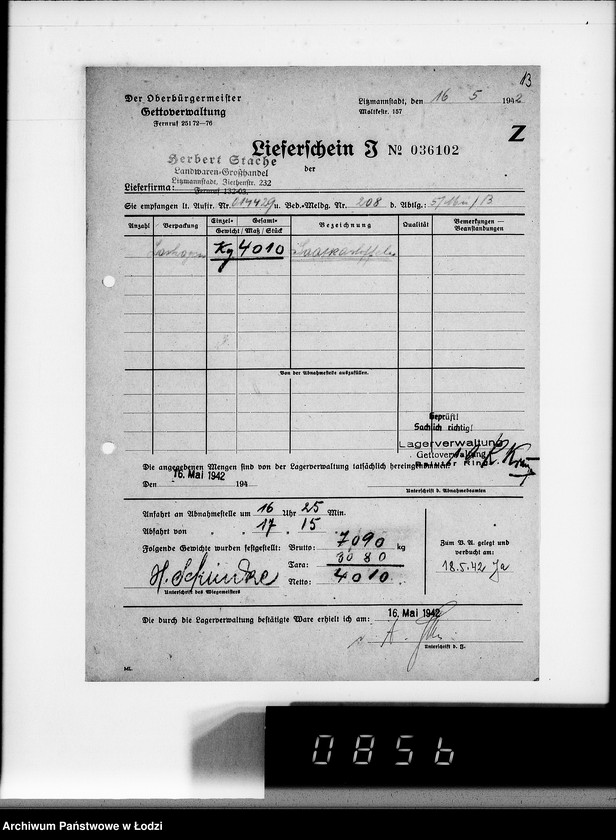 13
Der Oberbürgermeister
Gettoverwaltung
Fernruf 251 72—76
Litzmannstadt, den 16 5 1942
Moltkestr. 157
Z
Lieferschein J № 036102
der
Herbert Stache
Landwaren-Großhandel
Litzmannstadt, Ziethenstr. 232
Fernruf 132-03
Lieferfirma:
Sie empfangen lt. Auftr. Nr. 017429 u. Bed.-Meldg. Nr. 208 d. Abtlg.:
Anzahl Verpackung Einzel- Gesamt- Gewicht / Maß / Stück Bezeichnung Qualität Bemerkungen — Beanstandungen
Kg 4010 Saatkartoffeln
Von der Abnahmestelle auszufüllen.
Geprüft!
Sachlich richtig!
Lagerverwaltung
Gettoverwaltung
Die angegebenen Mengen sind von der Lagerverwaltung tatsächlich hereingenommen
Den 16. Mai 1942 194
Unterschrift d. Abnahmebeamten
Anfahrt an Abnahmestelle um 16 Uhr 25 Min.
Abfahrt von " " 17 " 15 "
Folgende Gewichte wurden festgestellt: Brutto: 7090 kg
Tara: 3080 "
Netto: 4010 "
Unterschrift des Wiegemeisters
Zum B. A. gelegt und
verbucht am:
18.5.42
Die durch die Lagerverwaltung bestätigte Ware erhielt ich am: 16. Mai 1942
Unterschrift d. F.
ML
0856
Archiwum Państwowe w Łodzi